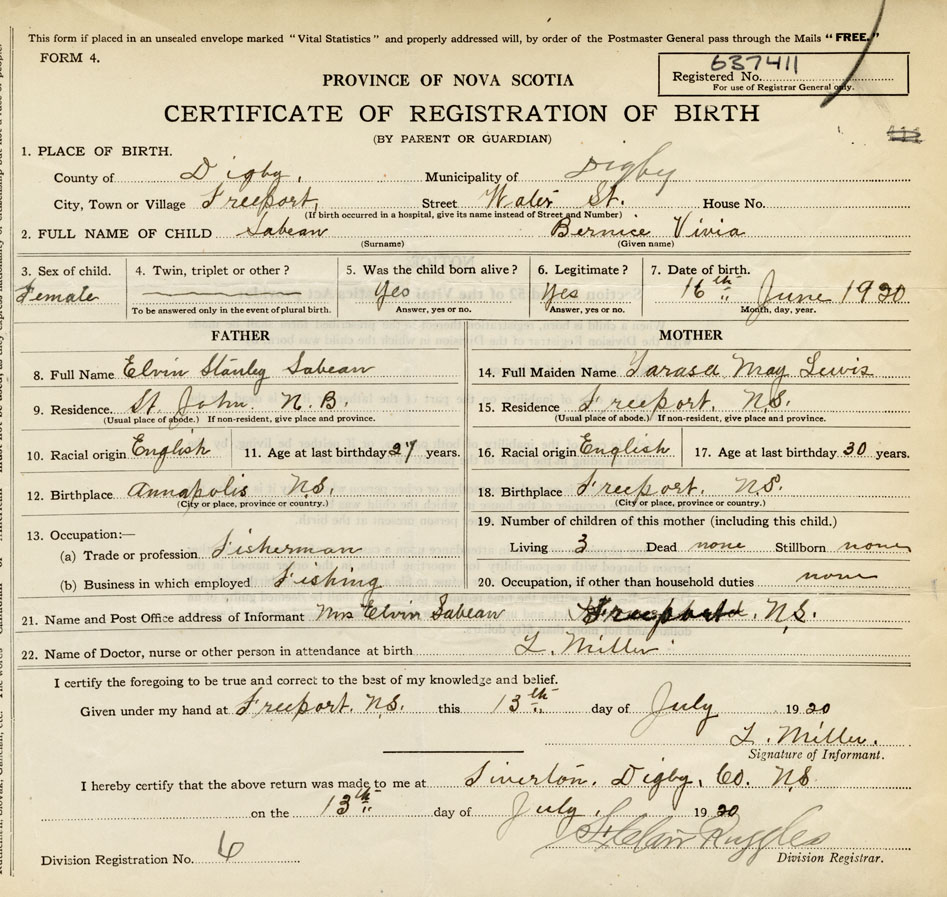 This form if placed in an unsealed envelope marked "Vital Statistics" and properly addressed will, by order of the Postmaster General pass through the Mails "FREE."
FORM 4.
637411
Registered No.
For use of Registrar General only.
PROVINCE OF NOVA SCOTIA
CERTIFICATE OF REGISTRATION OF BIRTH
(BY PARENT OR GUARDIAN)
1. PLACE OF BIRTH.
County of Digby, Municipality of Digby
City, Town or Village Freeport, Street Water St. House No.
(If birth occurred in a hospital, give its name instead of Street and Number)
2. FULL NAME OF CHILD Sabean Bernice Vivia
(Surname) (Given name)
3. Sex of child. 4. Twin, triplet or other? 5. Was the child born alive? 6. Legitimate? 7. Date of birth.
Female Yes Yes 16th June 1920
To be answered only in the event of plural birth. Answer, yes or no. Answer, yes or no. Month, day, year.
FATHER MOTHER
8. Full Name Elvin Stanley Sabean 14. Full Maiden Name May Lewis
9. Residence. St. John. N.B. 15. Residence Freeport. N.S.
(Usual place of abode.) If non-resident, give place and province. (Usual place of abode.) If non-resident, give place and province.
10. Racial origin English 11. Age at last birthday 27 years. 16. Racial origin English 17. Age at last birthday 30 years.
12. Birthplace Annapolis N.S. 18. Birthplace Freeport. N.S.
(City or place, province or country.) (City or place, province or country.)
13. Occupation:— 19. Number of children of this mother (including this child.)
(a) Trade or profession Fisherman Living 3 Dead none Stillborn none
(b) Business in which employed Fishing 20. Occupation, if other than household duties none
21. Name and Post Office address of Informant Mrs Elvin Sabean Freeport. N.S.
22. Name of Doctor, nurse or other person in attendance at birth L. Miller
I certify the foregoing to be true and correct to the best of my knowledge and belief.
Given under my hand at Freeport. N.S. this 13th day of July 1920
L. Miller.
Signature of Informant.
I hereby certify that the above return was made to me at Tiverton. Digby, Co. N.S
on the 13th day of July, 1920
Ruggles
Division Registration No. 6 Division Registrar.